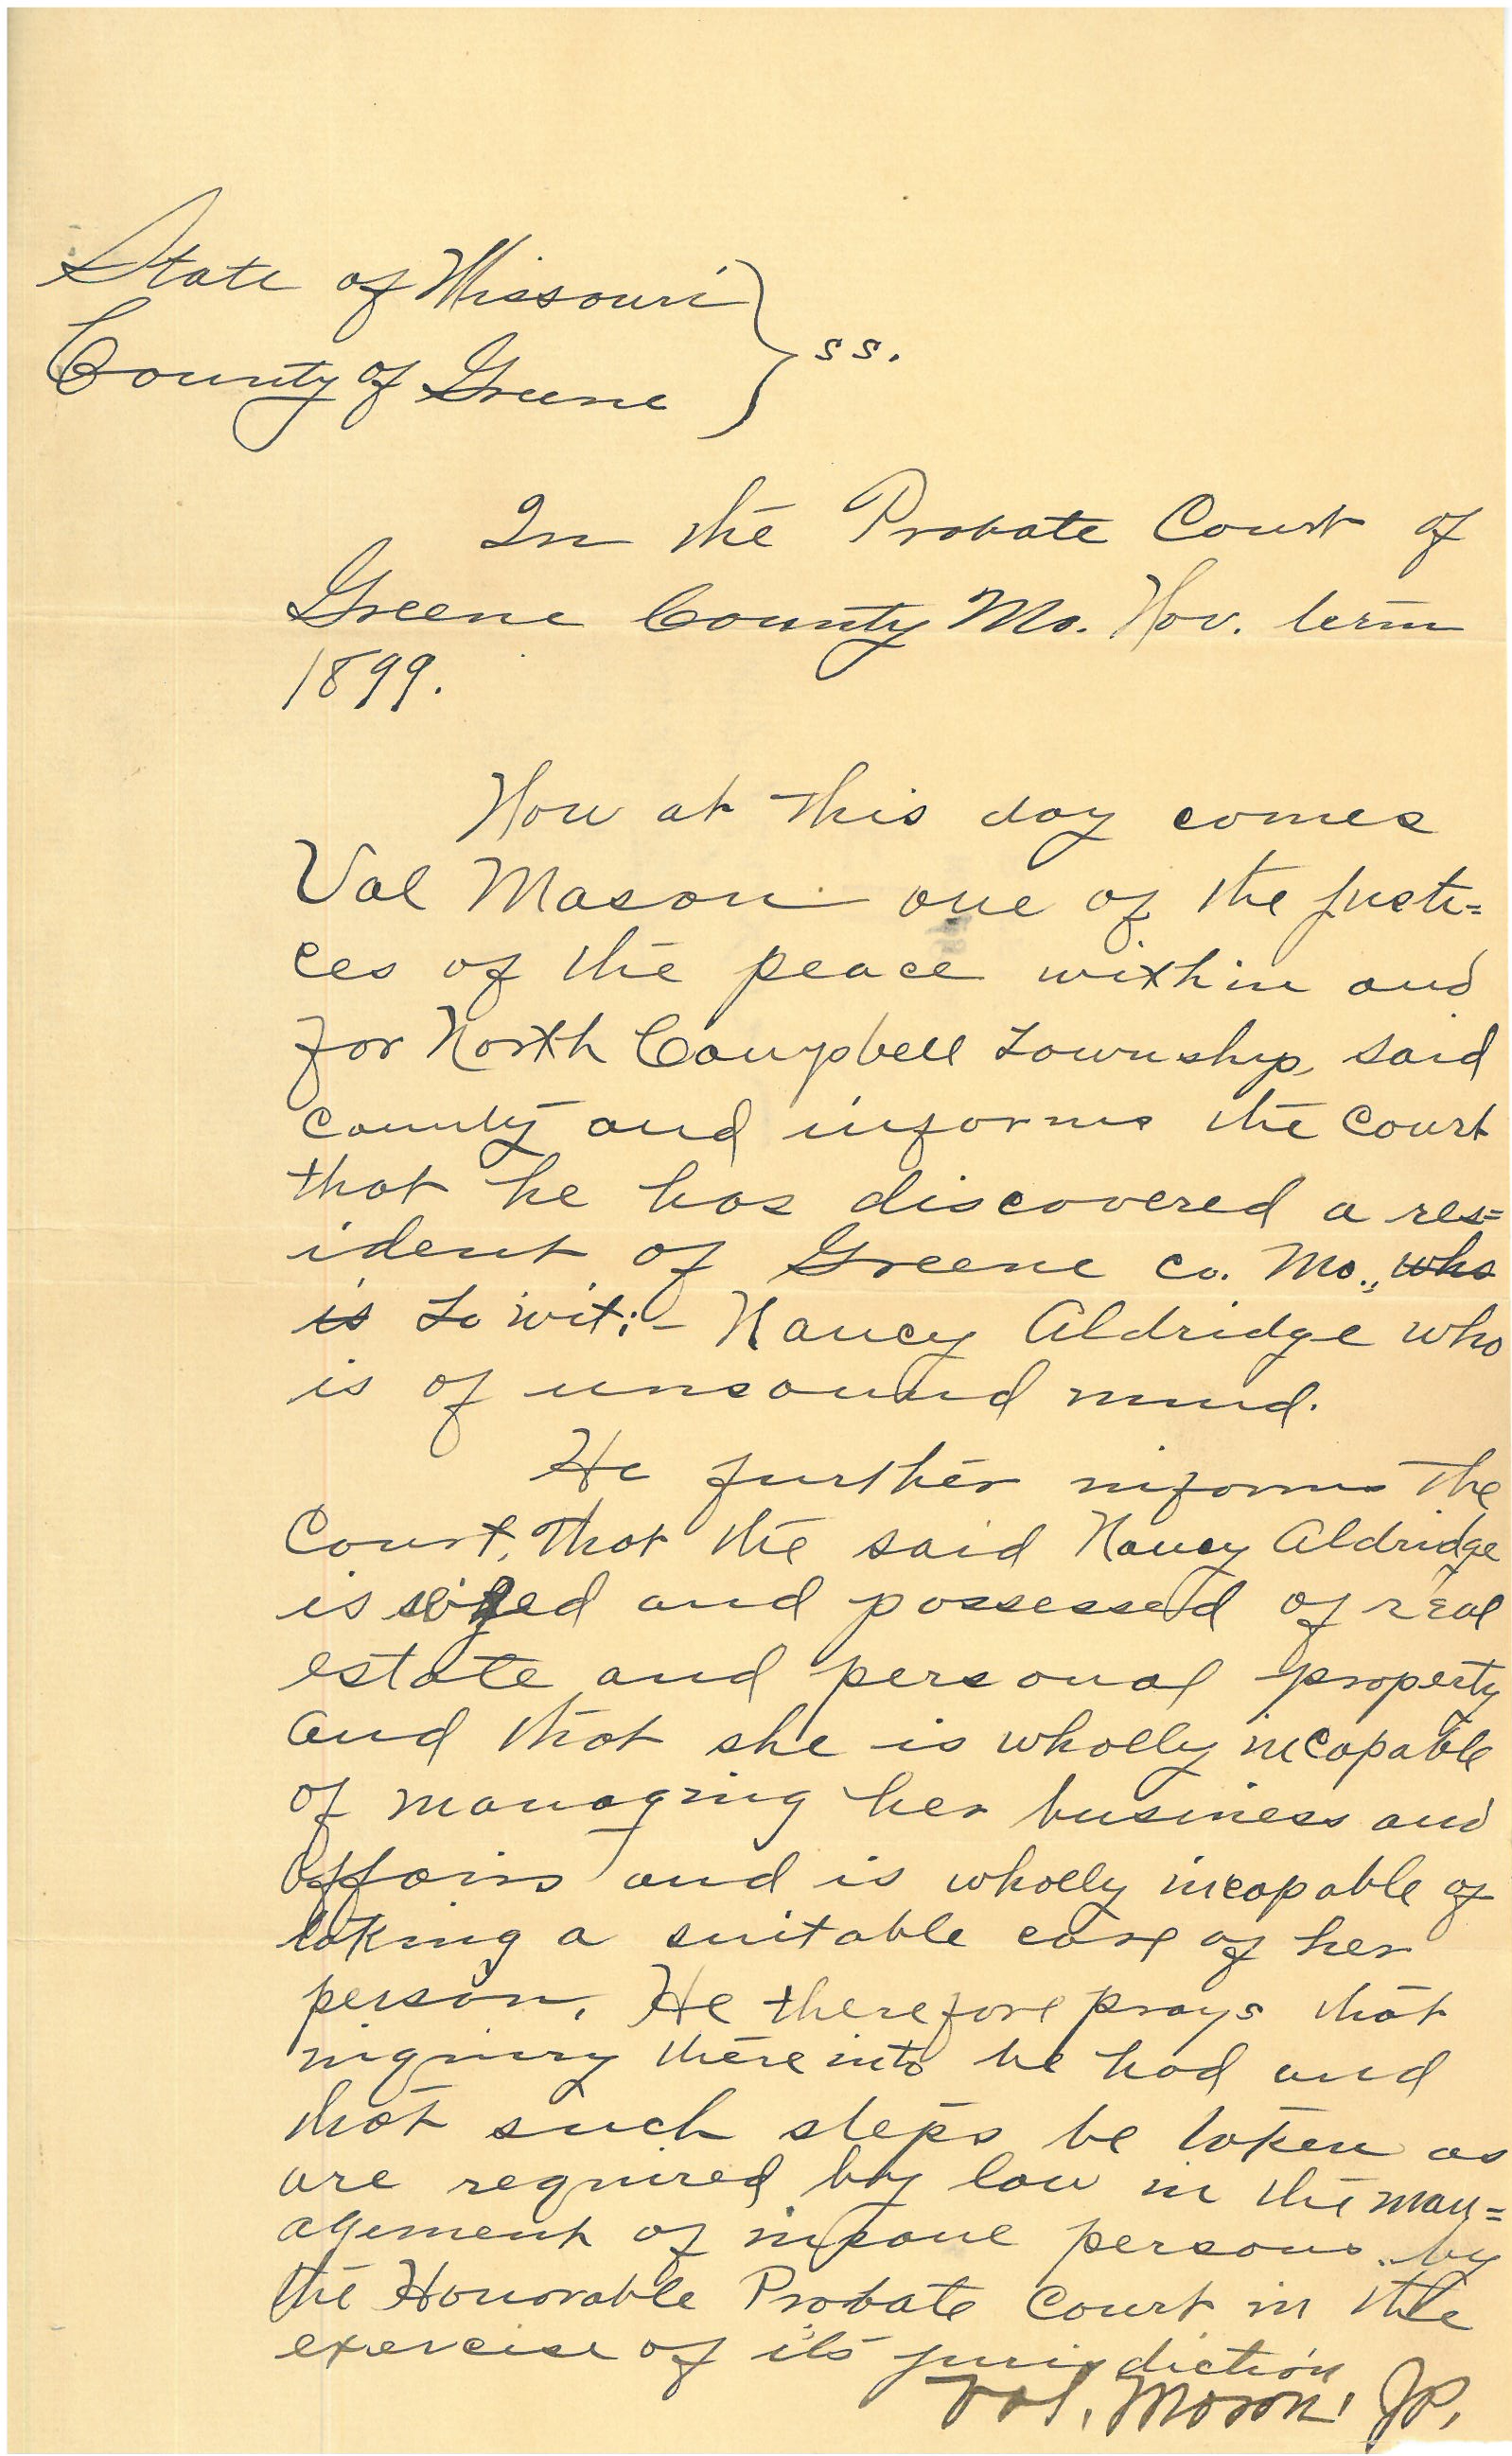 State of Missouri } ss.
County of Greene
In the Probate Court of
Greene County Mo. Nov. term
1899.
Now at this day comes
Val Mason one of the justi=
ces of the peace within and
for North Campbell Township, said
county and informs the court
that he has discovered a res=
ident of Greene Co. Mo., who
is To wit:- Nancy Aldridge who
is of unsound mind.
He further informs the
Court, that the said Nancy Aldridge
is seized and possessed of real
estate and personal property
and that she is wholly incapable
of managing her business and
affairs and is wholly incapable of
taking a suitable care of her
person. He therefore prays that
inquiry there into be had and
that such steps be taken as
are required by law in the man=
agement of insane persons by
the Honorable Probate Court in the
exercise of its jurisdiction
Val. Mason J.P.